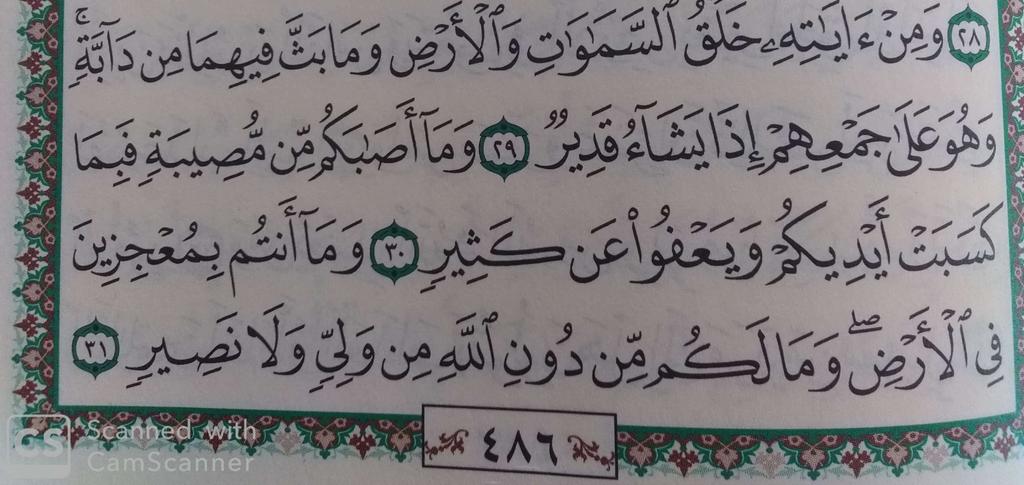 ﴿٢٨﴾ وَمِنْ ءَايَٰتِهِۦ خَلْقُ ٱلسَّمَٰوَٰتِ وَٱلْأَرْضِ وَمَا بَثَّ فِيهِمَا مِن دَآبَّةٍۚ
وَهُوَ عَلَىٰ جَمْعِهِمْ إِذَا يَشَآءُ قَدِيرٌ ﴿٢٩﴾ وَمَآ أَصَٰبَكُم مِّن مُّصِيبَةٍ فَبِمَا
كَسَبَتْ أَيْدِيكُمْ وَيَعْفُوا۟ عَن كَثِيرٍ ﴿٣٠﴾ وَمَآ أَنتُم بِمُعْجِزِينَ
فِى ٱلْأَرْضِۖ وَمَا لَكُم مِّن دُونِ ٱللَّهِ مِن وَلِىٍّ وَلَا نَصِيرٍ ﴿٣١﴾
٤٨٦
CS Scanned with
CamScanner